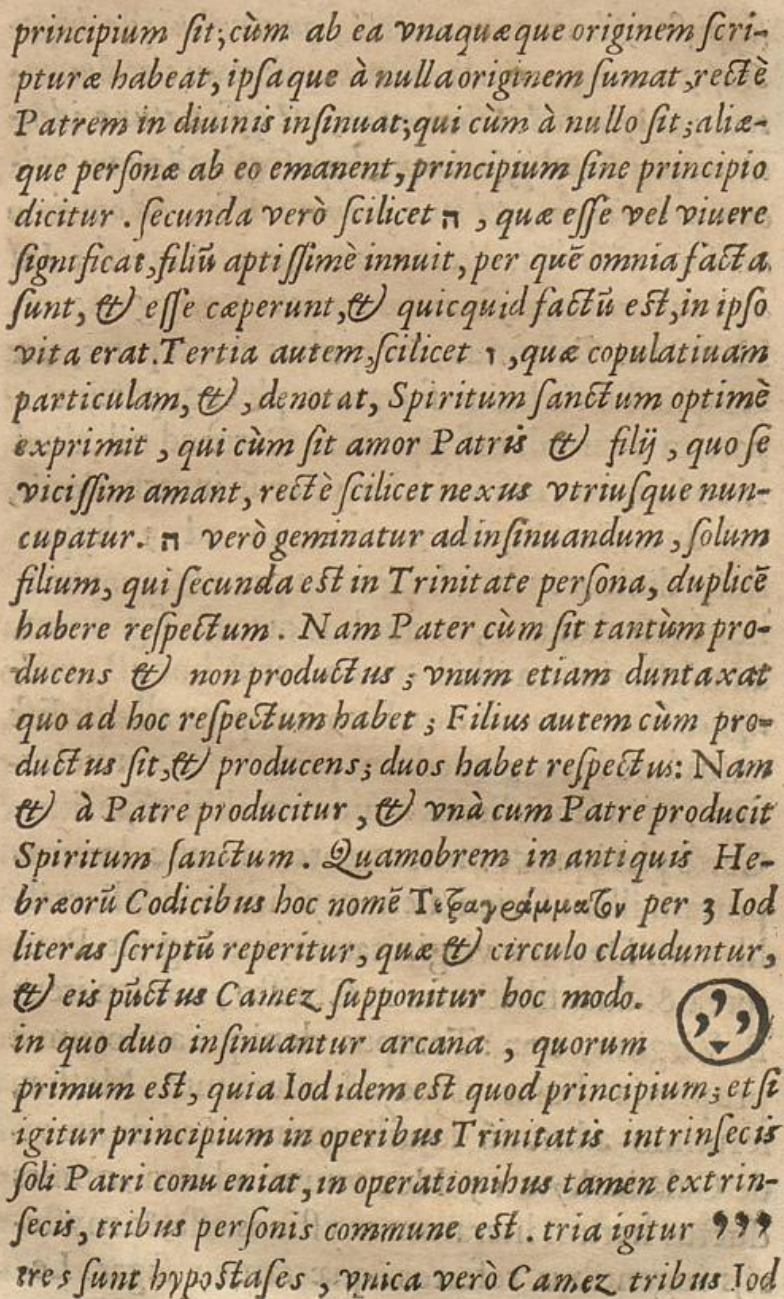 principium ſit; cùm ab ea vnaquæque originem ſcri-
pturæ habeat, ipſaque à nulla originem ſumat, rectè
Patrem in diuinis inſinuat; qui cùm à nullo ſit; aliæ-
que perſonæ ab eo emanent, principium ſine principio
dicitur. ſecunda verò ſcilicet ה, quæ eſſe vel viuere
ſignificat, filiū aptiſſimè innuit, per quē omnia facta
ſunt, & eſſe cæperunt, & quicquid factū eſt, in ipſo
vita erat. Tertia autem, ſcilicet ו, quæ copulatiuam
particulam, &, denotat, Spiritum ſanctum optimè
exprimit, qui cùm ſit amor Patris & filij, quo ſe
viciſſim amant, rectè ſcilicet nexus vtriuſque nun-
cupatur. ה verò geminatur ad inſinuandum, ſolum
filium, qui ſecunda eſt in Trinitate perſona, duplicē
habere reſpectum. Nam Pater cùm ſit tantùm pro-
ducens & non productus; vnum etiam duntaxat
quo ad hoc reſpectum habet; Filius autem cùm pro-
ductus ſit, & producens; duos habet reſpectus: Nam
& à Patre producitur, & vnà cum Patre producit
Spiritum ſanctum. Quamobrem in antiquis He-
bræorū Codicibus hoc nomē Τετραγράμματον per 3 Iod
literas ſcriptū reperitur, quæ & circulo clauduntur,
& eis pūctus Camez ſupponitur hoc modo.
יייָ
in quo duo inſinuantur arcana, quorum
primum eſt, quia Iod idem eſt quod principium; et ſi
igitur principium in operibus Trinitatis intrinſecis
ſoli Patri conueniat, in operationibus tamen extrin-
ſecis, tribus perſonis commune eſt. tria igitur ייי
tres ſunt hypoſtaſes, vnica verò Camez tribus Iod